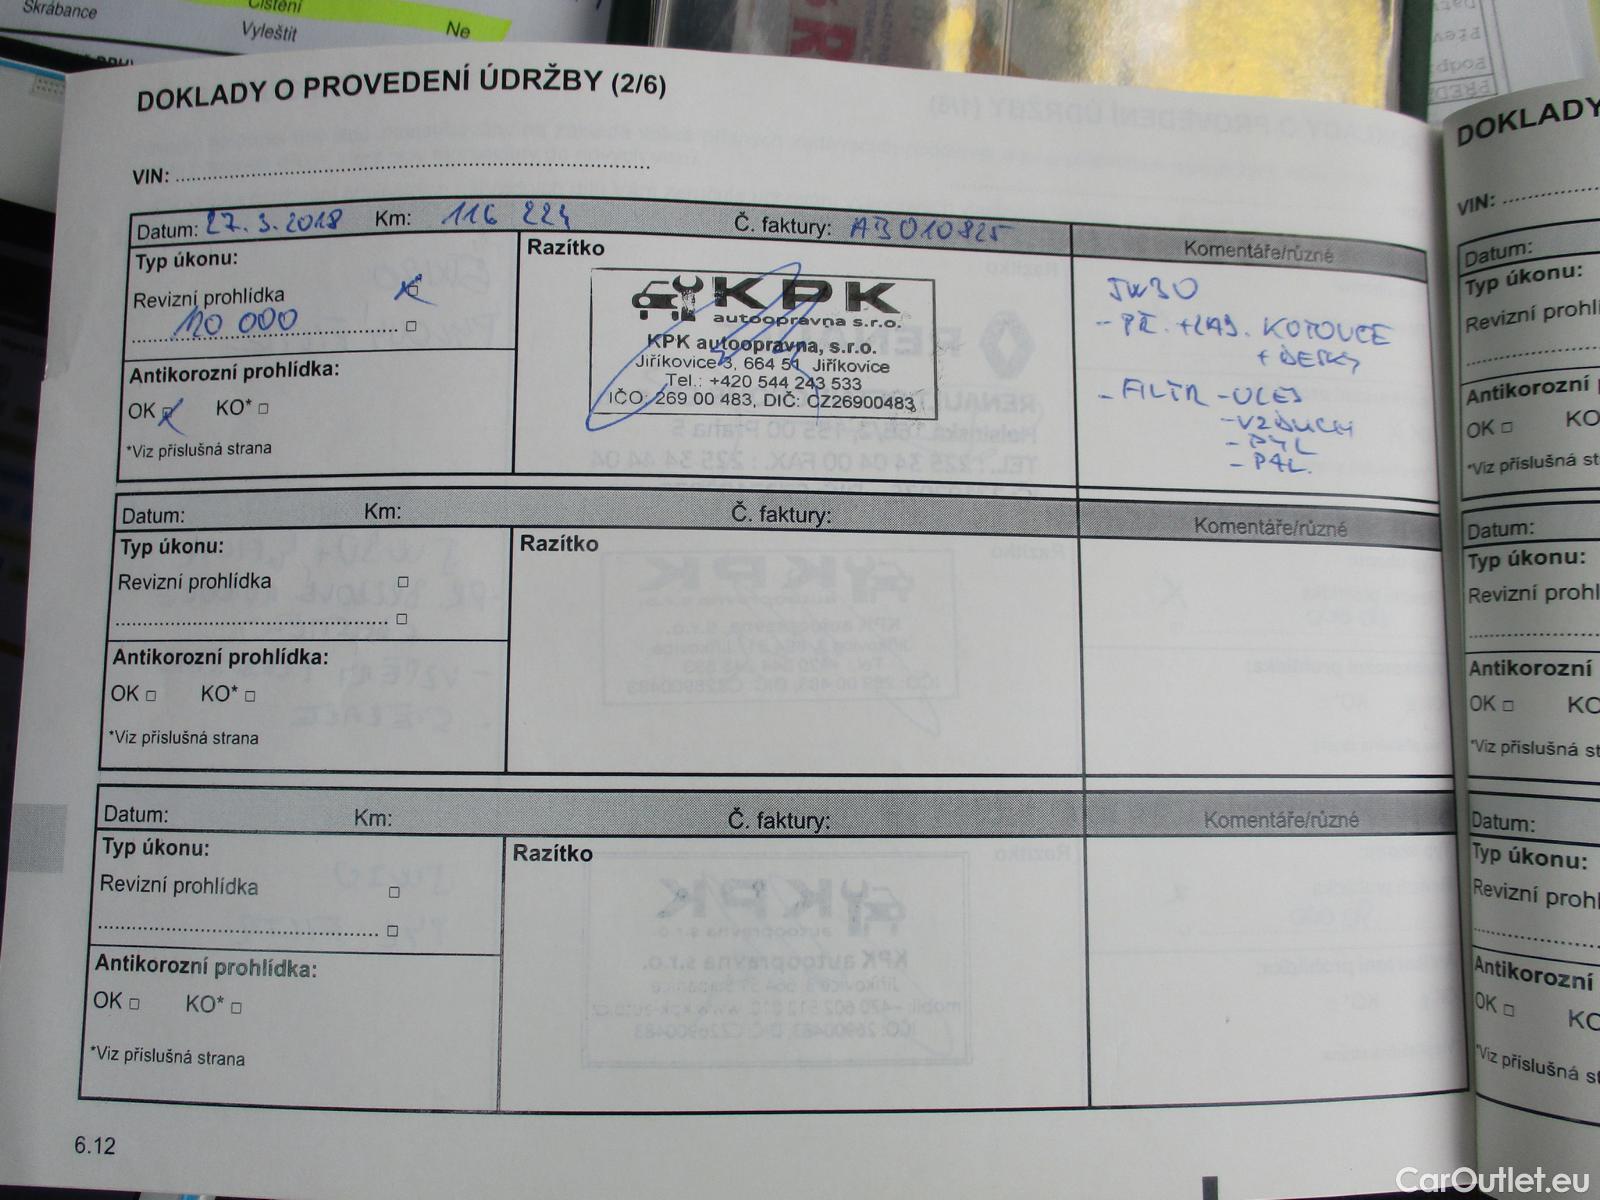 Skrábance
Čištění
Vyleštit
Ne
DOKLADY O PROVEDENÍ ÚDRŽBY (2/6)
VIN:
Datum: 27.3.2018 Km: 116 224 Č. faktury: AB010825
Komentáře/různé
Typ úkonu:
Revizní prohlídka
120 000
Antikorozní prohlídka:
OK KO*
*Viz příslušná strana
Razítko
KPK
autoopravna s.r.o.
KPK autoopravna, s.r.o.
Jiříkovice 3, 664 51 Jiříkovice
Tel.: +420 544 243 533
IČO: 269 00 483, DIČ: CZ26900483
5W30
- PŘ. + ZAD. KOTOUČE
+ DESKY
- FILTR - OLEJ
- VZDUCH
- PYL
- PAL.
Datum: Km: Č. faktury:
Komentáře/různé
Typ úkonu:
Revizní prohlídka
Antikorozní prohlídka:
OK KO*
*Viz příslušná strana
Razítko
Datum: Km: Č. faktury:
Komentáře/různé
Typ úkonu:
Revizní prohlídka
Antikorozní prohlídka:
OK KO*
*Viz příslušná strana
Razítko
6.12
DOKLADY
VIN:
Datum:
Typ úkonu:
Revizní prohl
Antikorozní
OK KO
*Viz příslušná st
Datum:
Typ úkonu:
Revizní prohl
Antikorozní
OK KO
*Viz příslušná st
Datum:
Typ úkonu:
Revizní prohl
Antikorozní
OK KO
*Viz příslušná s
CarOutlet.eu